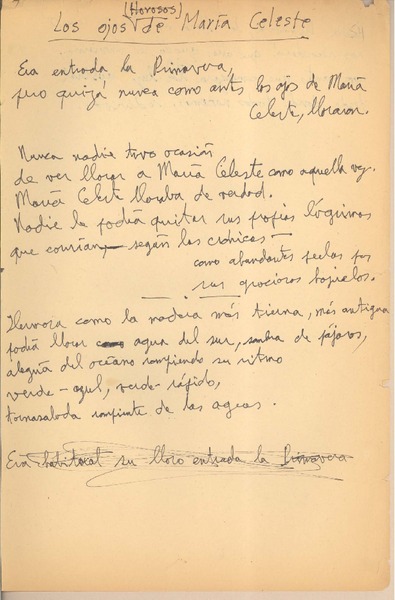 (Llorosos)
Los ojos de María Celeste
54
Era entrada la Primavera,
pero quizá nunca como antes los ojos de María
Celeste, lloraron.
Nunca nadie tuvo ocasión
de ver llorar a María Celeste como aquella vez.
María Celeste lloraba de verdad.
Nadie le podía quitar sus propias lágrimas
que corrían, según las crónicas
como abundantes perlas por
sus graciosos hoyuelos.
Llorosa como la madera más tierna, más antigua
podía llorar agua del sur, sombra de pájaros,
alegría del océano rompiendo su ritmo
verde-azul, verde-rápido,
tornasolada rompiente de las aguas.
Era habitual su lloro entrada la Primavera